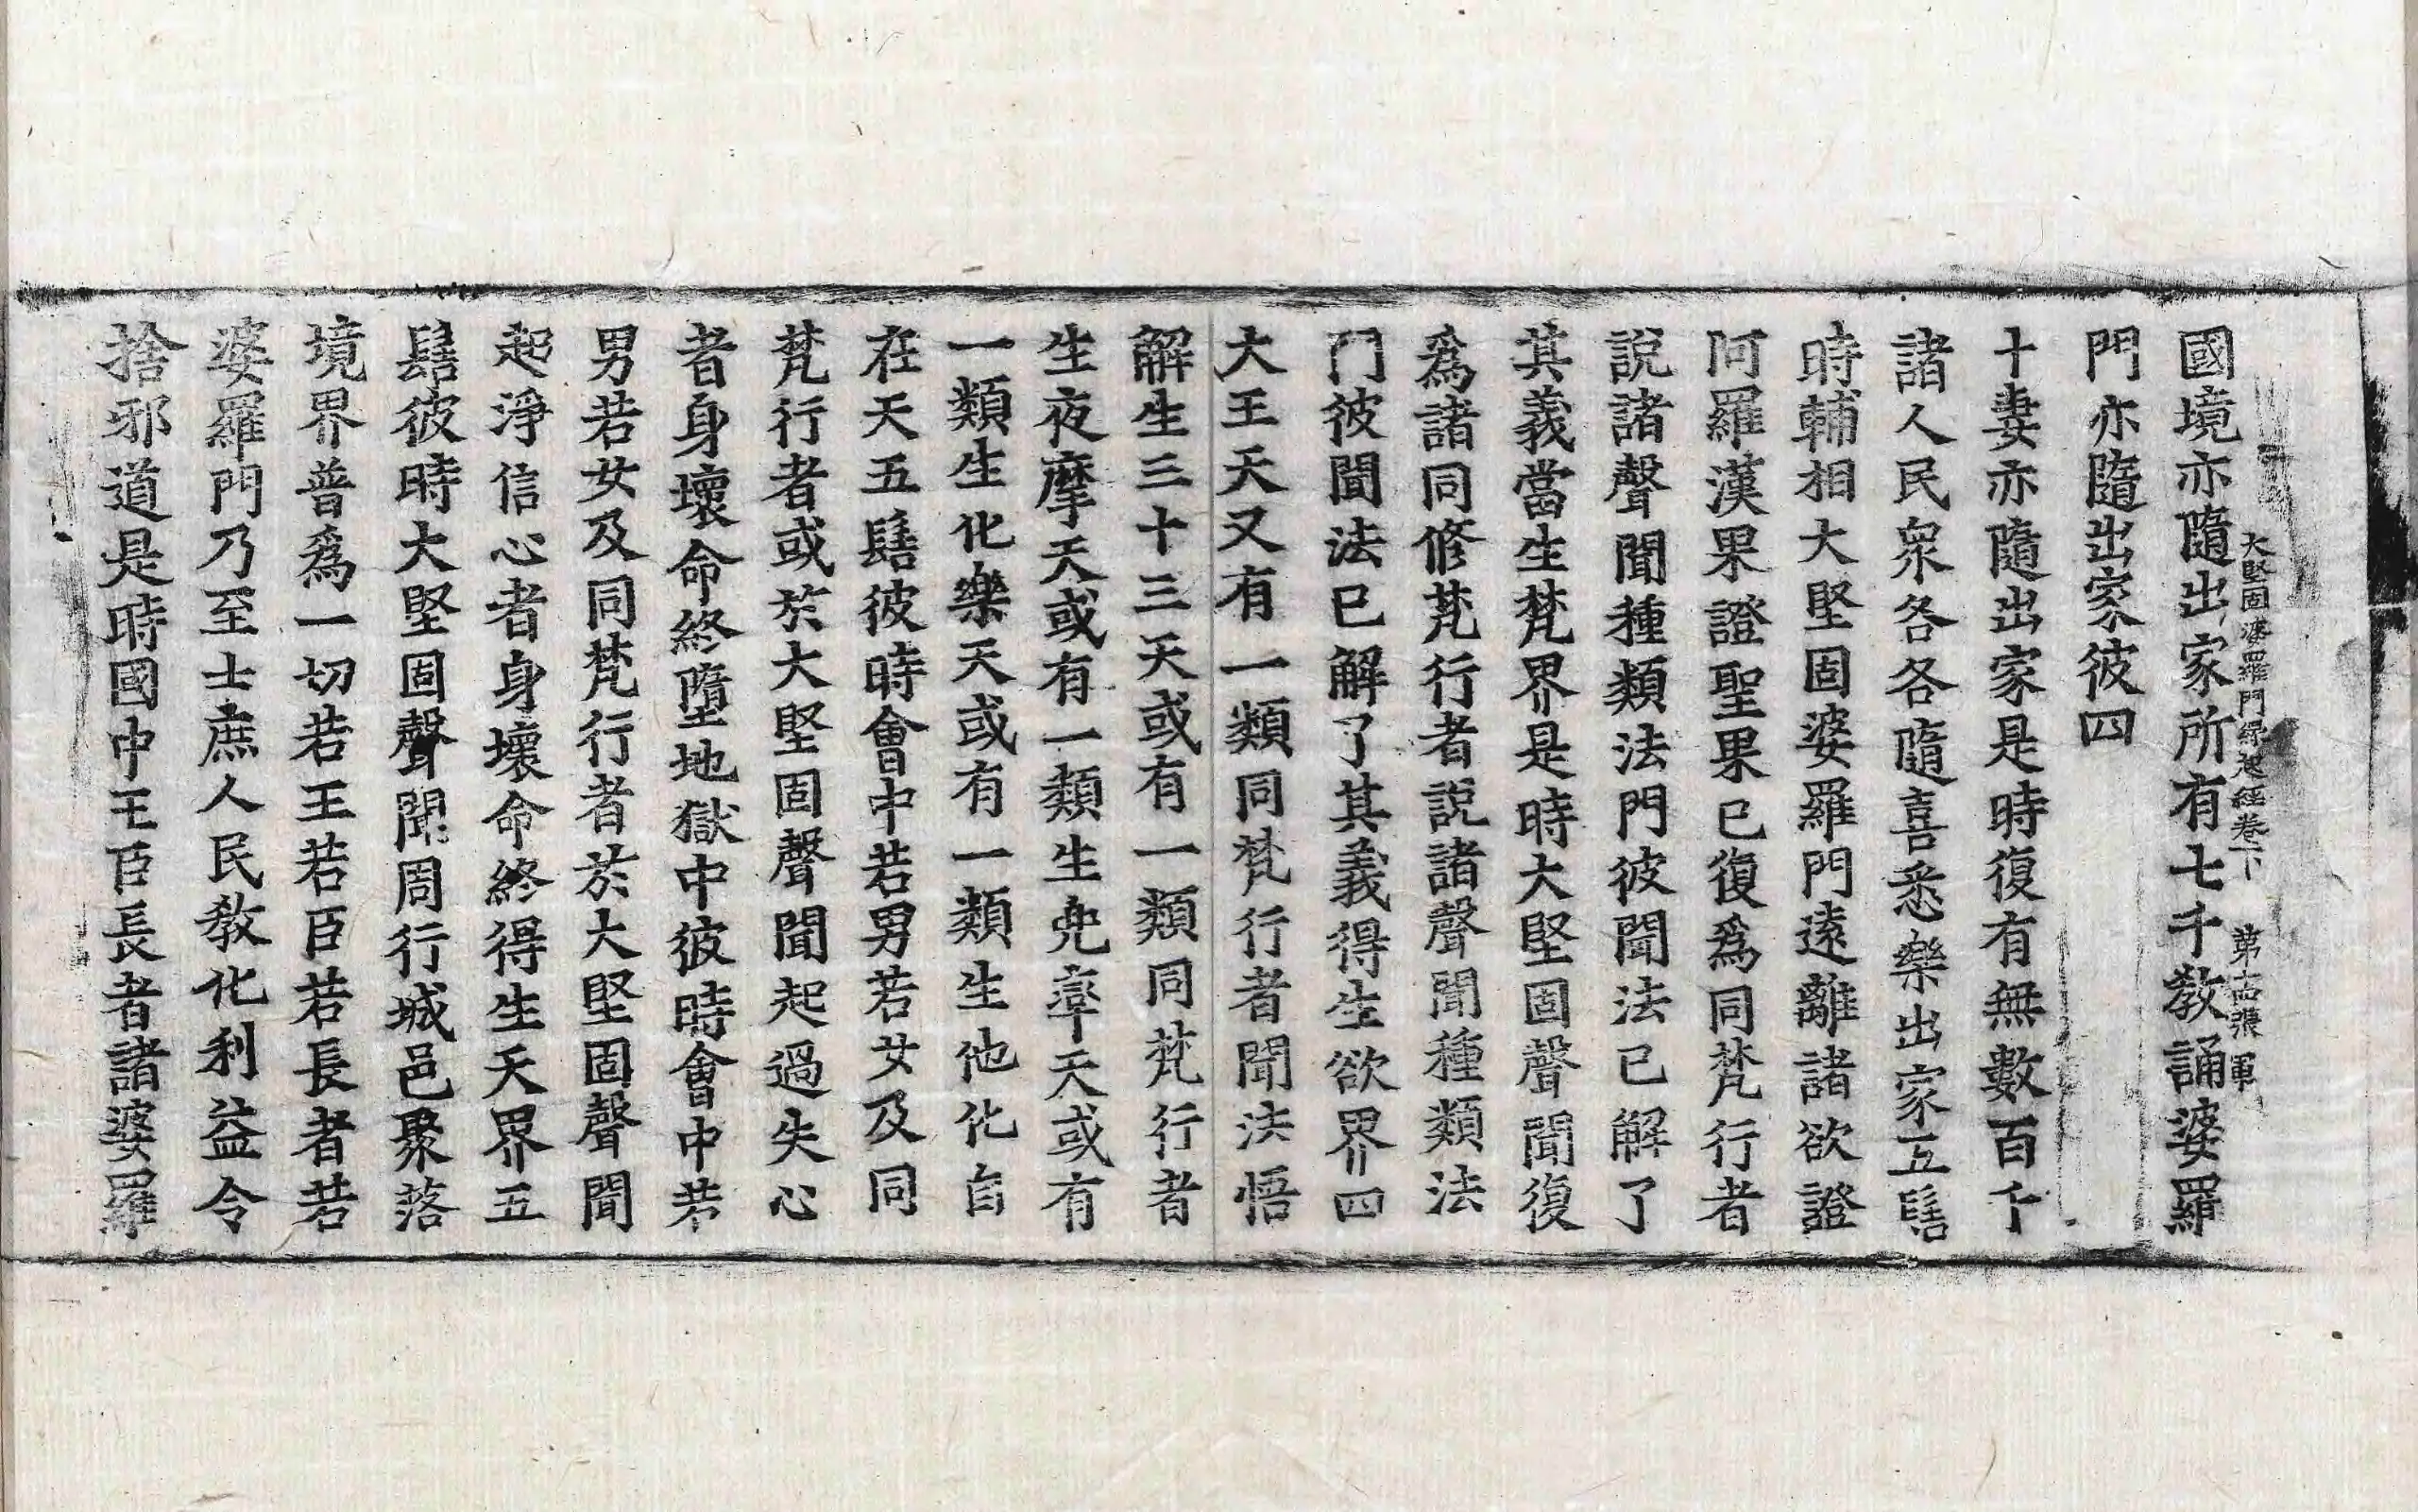 國境亦隨出家所有七千教誦婆羅
大堅固婆羅門緣起經卷下 第十四張 軍
門亦隨出家彼四
十妻亦隨出家是時復有無數百千
諸人民衆各各隨喜悉樂出家五髻
時輔相大堅固婆羅門遠離諸欲證
阿羅漢果證聖果已復爲同梵行者
說諸聲聞種類法門彼聞法已解了
其義當生梵界是時大堅固聲聞復
爲諸同修梵行者說諸聲聞種類法
門彼聞法已解了其義得生欲界四
大王天又有一類同梵行者聞法悟
解生三十三天或有一類同梵行者
生夜摩天或有一類生兜率天或有
一類生化樂天或有一類生他化自
在天五髻彼時會中若男若女及同
梵行者或於大堅固聲聞起過失心
者身壞命終墮地獄中彼時會中若
男若女及同梵行者於大堅固聲聞
起淨信心者身壞命終得生天界五
髻彼時大堅固聲聞周行城邑聚落
境界普爲一切若王若臣若長者若
婆羅門乃至士庶人民教化利益令
捨邪道是時國中王臣長者諸婆羅